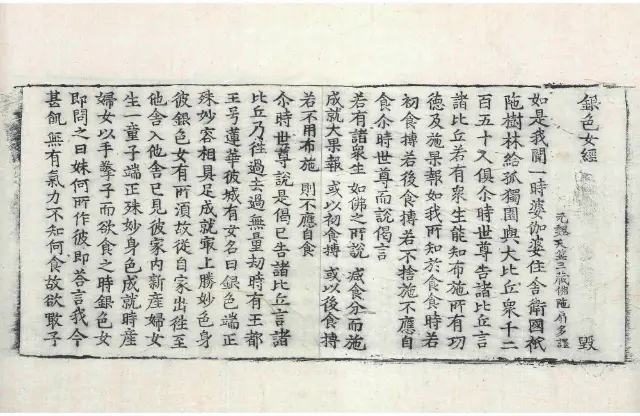 銀色女經 毀
元魏天竺三藏佛陁扇多譯
如是我聞一時婆伽婆住舍衛國祇
陁樹林給孤獨園與大比丘衆千二
百五十人俱尒時世尊告諸比丘言
諸比丘若有衆生能知布施所有功
德及施果報如我所知於食食時若
初食摶若後食摶若不捨施不應自
食尒時世尊而說偈言
若有諸衆生 如佛之所說 減食分而施
成就大果報 或以初食摶 或以後食摶
若不用布施 則不應自食
尒時世尊說是偈已告諸比丘言諸
比丘乃往過去過無量劫時有王都
王号蓮華彼城有女名曰銀色端正
殊妙容相具足成就㝡上勝妙色身
彼銀色女有所湏故從自家出往至
他舍入他舍已見彼家內新產婦女
生一童子端正殊妙身色成就時產
婦女以手擎子而欲食之時銀色女
即問之曰妹何所作彼即荅言我今
甚飢無有氣力不知何食故欲敢子